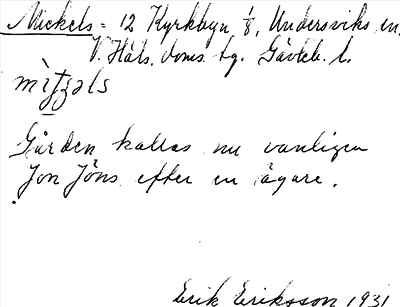 Mickels = 12 Kyrkbyn 1/8, Undersviks sn,
V. Häls. doms. hg. Gävleb. l.
Gården kallas nu vanligen
Jon Jöns efter en ägare.
Erik Eriksson 1931